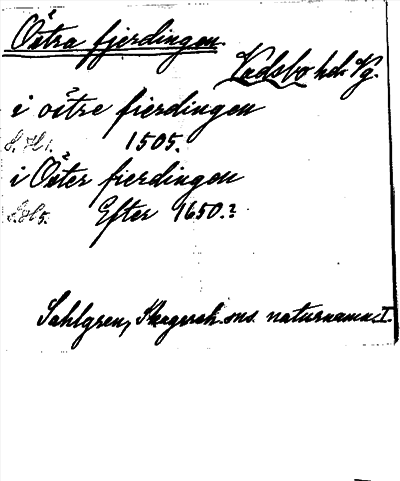 Östra fjerdingen.
Vadsbo hd. Vg.
i øitre fierdingen
S. H 1. 1505.
i Öster fierdingen
S. H 5. Efter 1650.?
Sahlgren, Skagersh. sns. naturnamn: I.